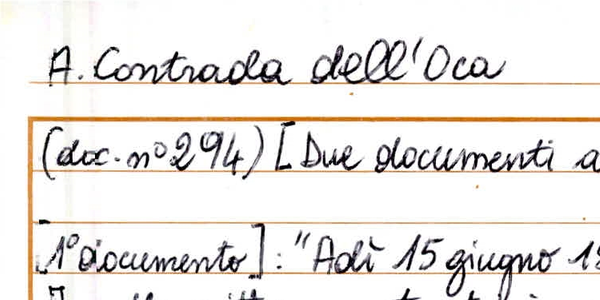 A. Contrada dell'Oca
(doc. nº 294) [Due documenti a
[1º documento]: "Adì 15 giugno